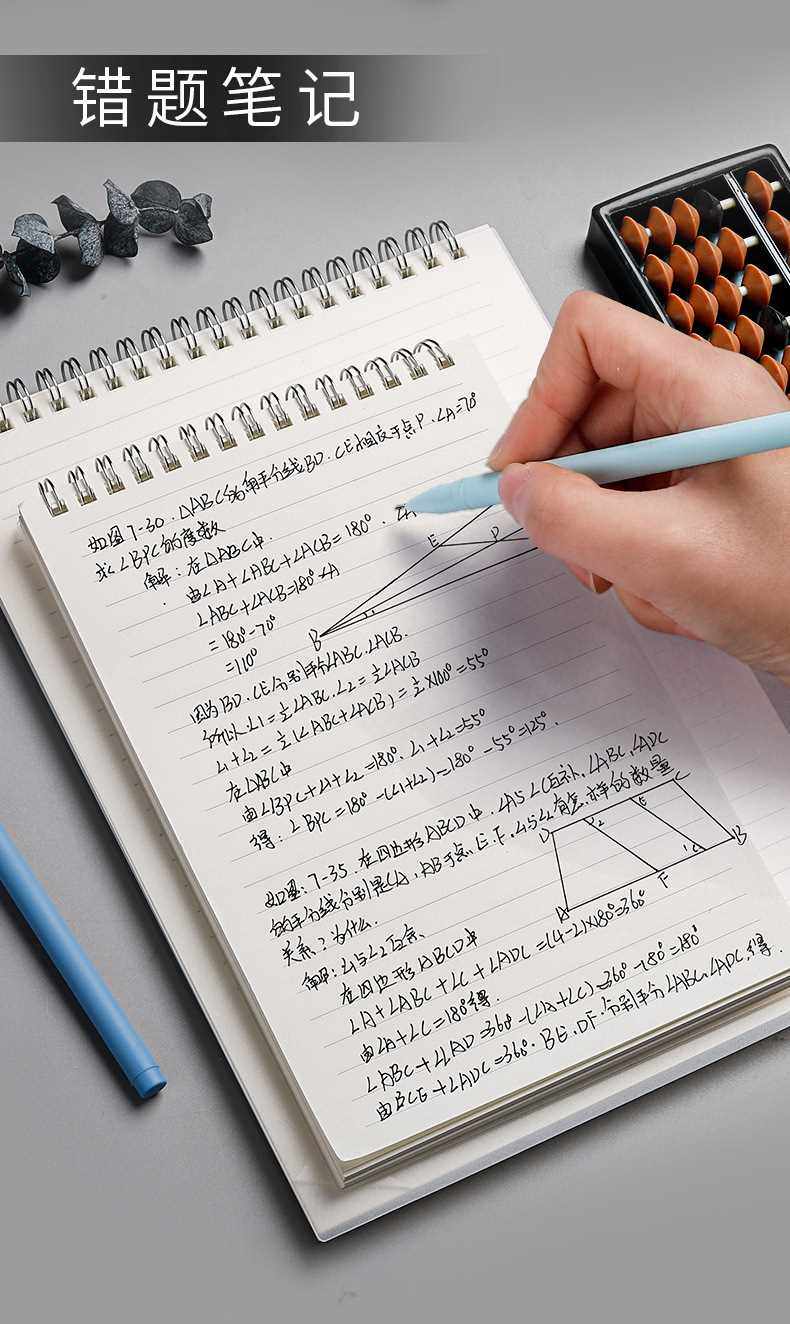 错题笔记
如图7-30.△ABC的角平分线BD.CE相交于点P.∠A=70°
求∠BPC的度数
解:在△ABC中.
由∠A+∠ABC+∠ACB=180°.∠A
∠ABC+∠ACB=180°-∠A
=180°-70°
=110°
E
P
B
因为BD.CE分别平分∠ABC.∠ACB.
所以∠1=½∠ABC.∠2=½∠ACB
∠1+∠2=½(∠ABC+∠ACB)=½×100°=55°
在△ABC中
由∠BPC+∠1+∠2=180°.∠1+∠2=55°
得:∠BPC=180°-(∠1+∠2)=180°-55°=125°.
如图:7-35.在四边形ABCD中.∠A与∠C互补.∠ABC,∠ADC
的平分线分别是CA,AB于点.E.F.∠1与∠2有怎样的数量
关系?为什么.
D
2
E
C
B
1
F
A
解:∠1与∠2互余.
在四边形ABCD中
∠A+∠ABC+∠C+∠ADC=(4-2)×180°=360°
由∠A+∠C=180°得.
∠ABC+∠LAD=360°-(∠A+∠C)=360°-180°=180°
由BCE+∠ADC=360°.BE.DF.分别平分∠ABC.∠ADC,得.